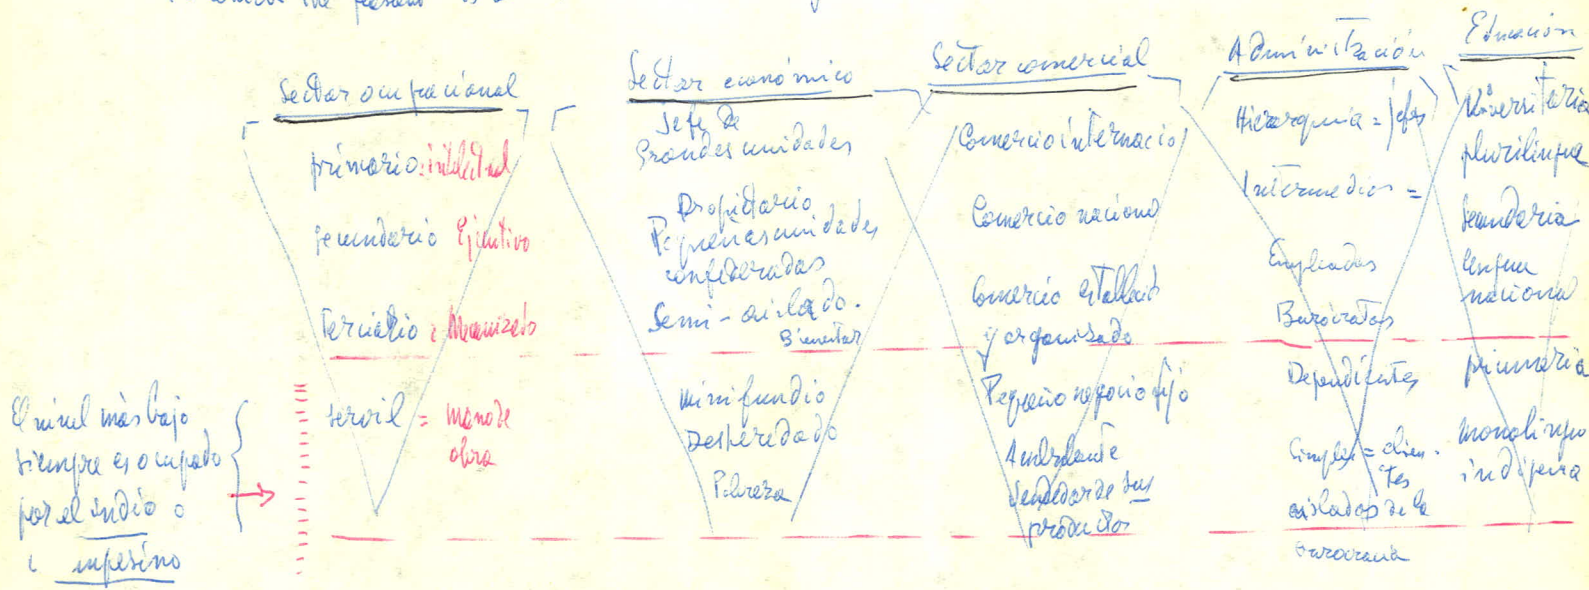 Sector ocupacional
primario: intelectual
secundario Ejecutivo
Terciario: Mecanizado
servil = mano de
obra
El nivel más bajo
siempre es ocupado
por el indio o
campesino
Sector económico
Jefe de
Grandes unidades
Propietario
Pequeñas unidades
confederadas
Semi-aislado.
Bienestar
minifundio
Desheredado
Pobreza
Sector comercial
Comercio internacio
Comercio nacional
Comercio establecido
y organizado
Pequeño negocio fijo
Ambulante
Vendedor de sus
productos
Administración
Hierarquia = jefes
Intermedios =
Empleados
Burócratas
Dependientes
Simples = clien-
tes
aislados de la
burocracia
Educación
Universitaria
plurilingue
Secundaria
lengua
nacional
primaria
monolingue
indígena